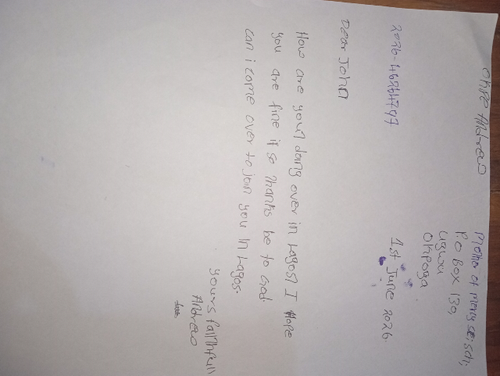 Okpo Andrew
Mother of Mercy sec. sch,
P.O Box 130,
Ugwu
Okpoga
2026-46264797
1st June 2026.
Dear John
How are your doing over in Lagos? I Hope
you are fine if so thanks be to God.
can i come over to join you in Lagos.
yours faithfull
Andrew